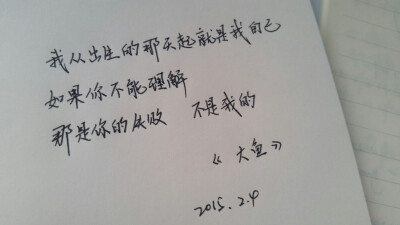 我从出生的那天起就是我自己
如果你不能理解
那是你的失败 不是我的
《大鱼》
2015.2.4